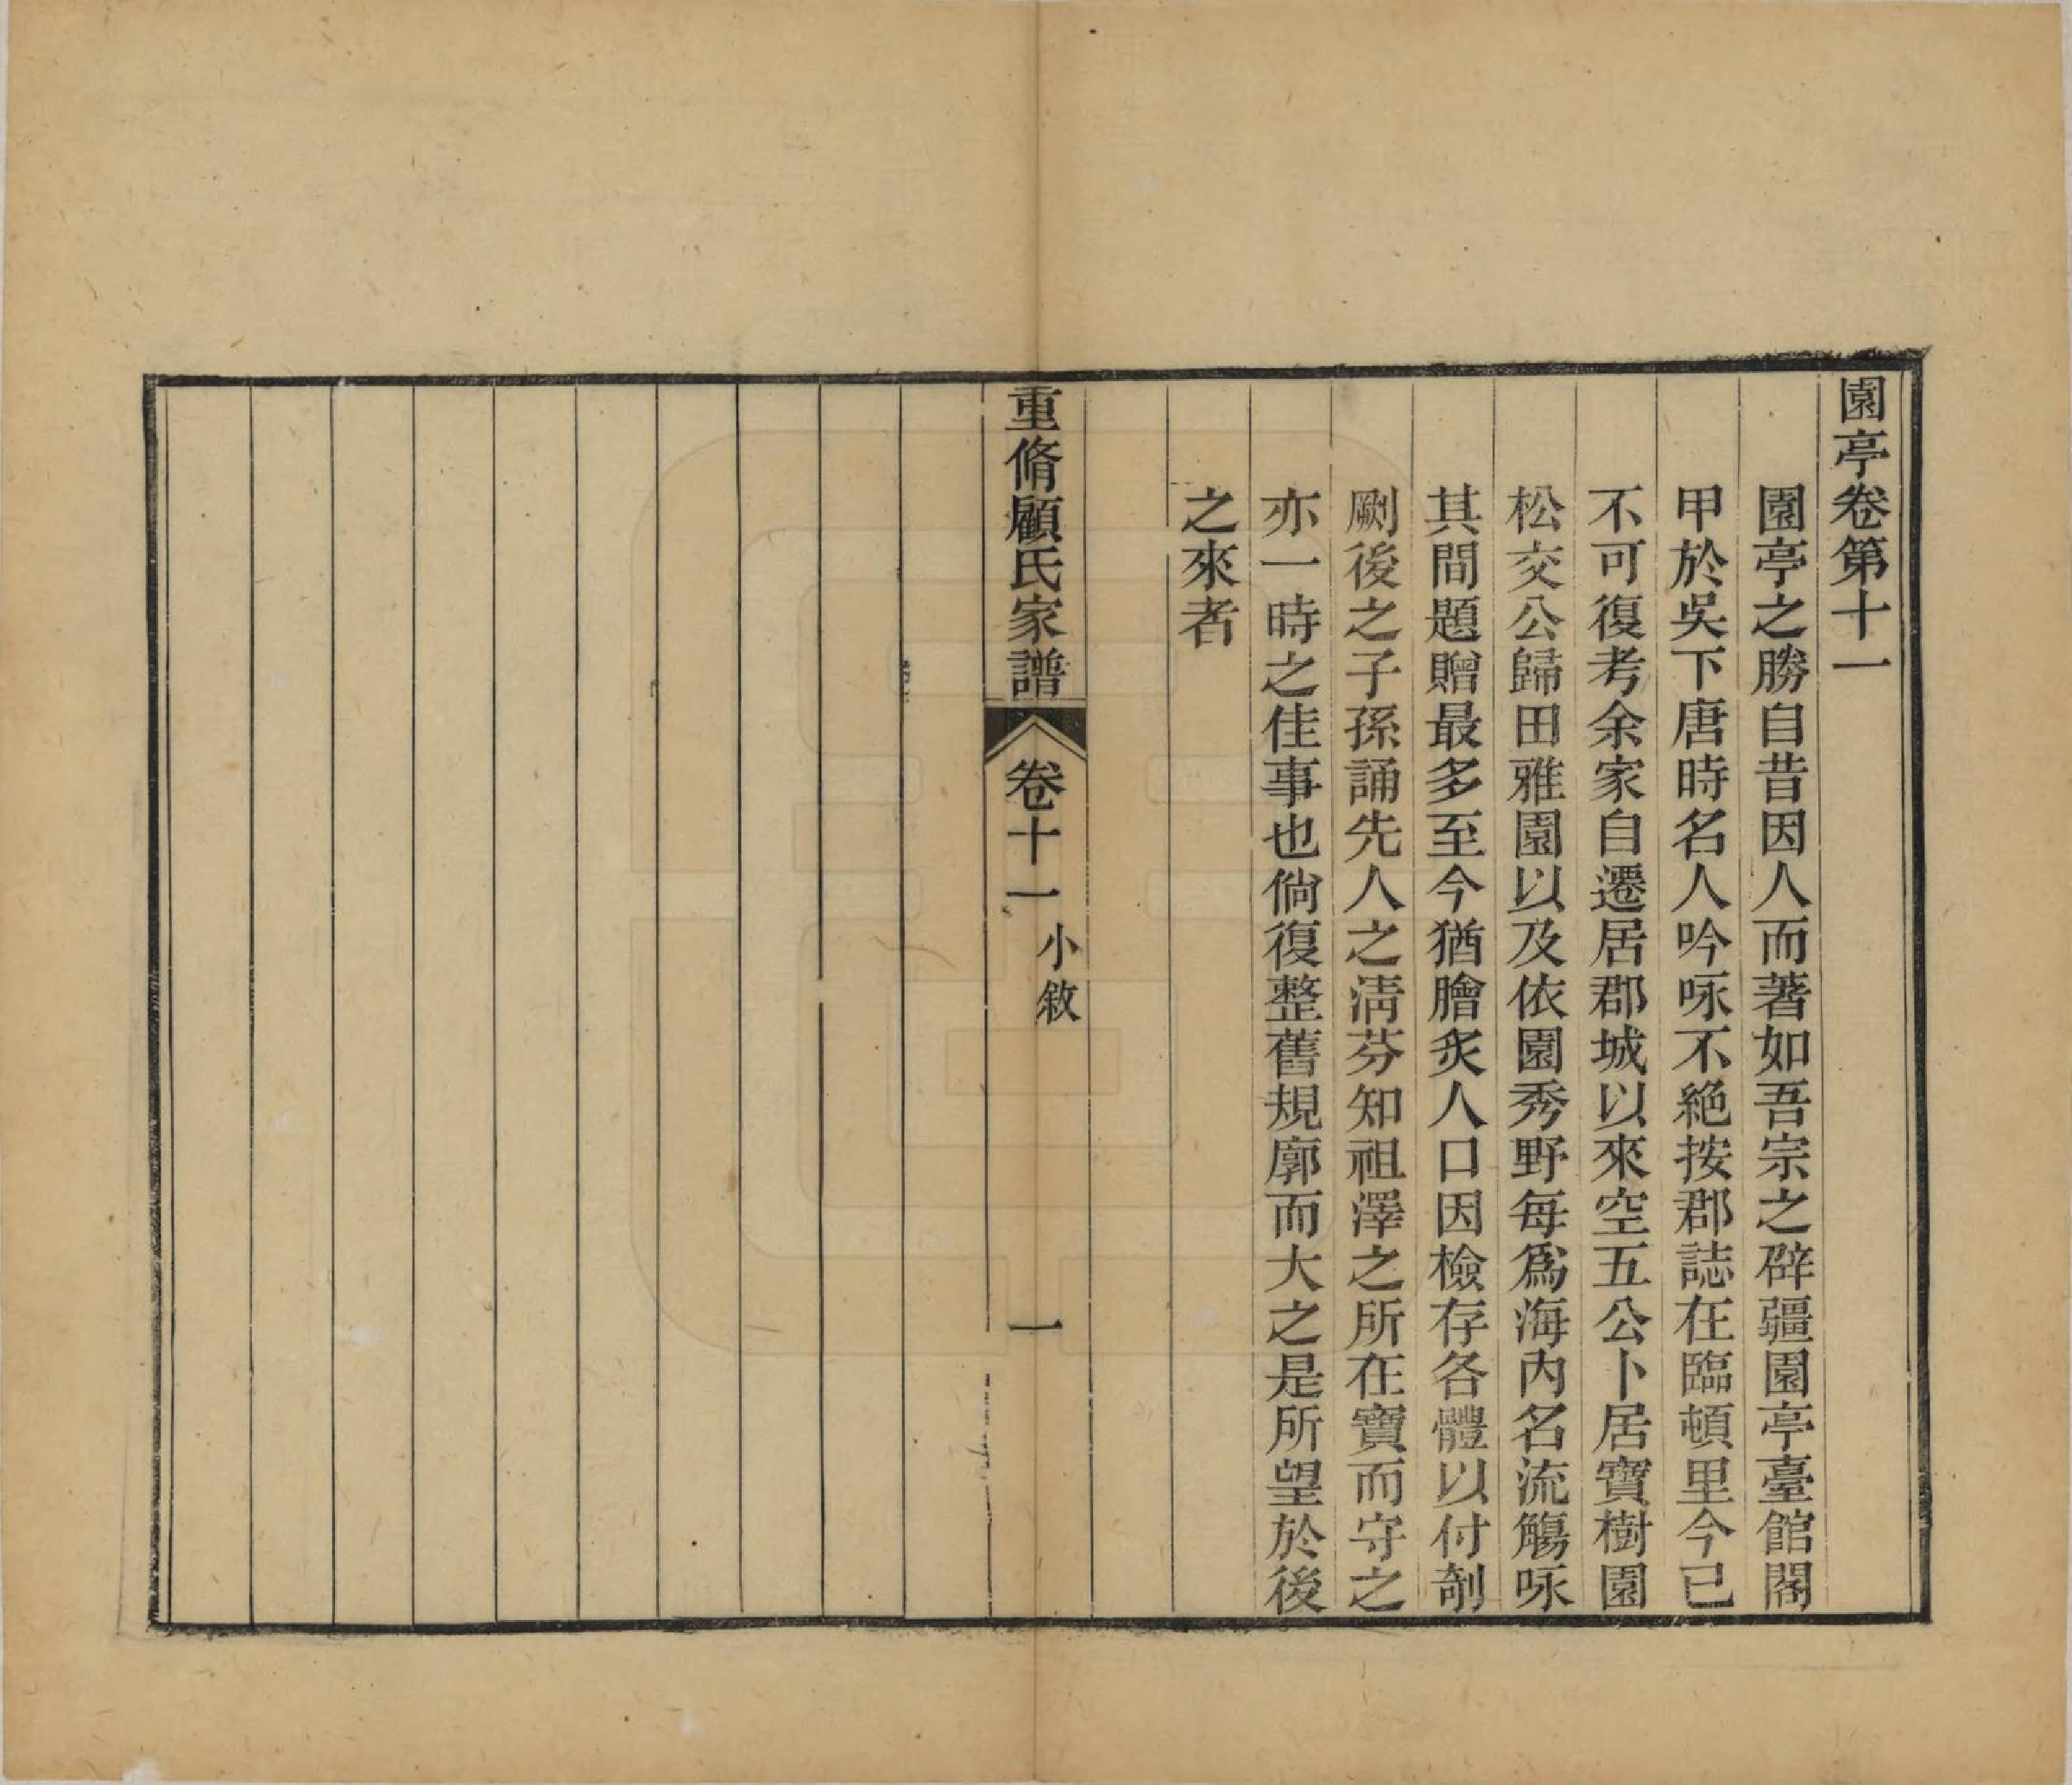 園亭卷第十一
園亭之勝自昔因人而著如吾宗之辟疆園亭臺館閣
甲於吳下唐時名人吟咏不絕按郡誌在臨頓里今已
不可復考余家自遷居郡城以來空五公卜居寶樹園
松交公歸田雅園以及依園秀野每爲海內名流觴咏
其間題贈最多至今猶膾炙人口因檢存各體以付剞
劂後之子孫誦先人之清芬知祖澤之所在寶而守之
亦一時之佳事也倘復整舊規廓而大之是所望於後
之來者
重脩顧氏家譜
卷十一
小敘
一